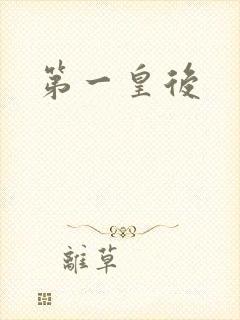 第一皇後
離草